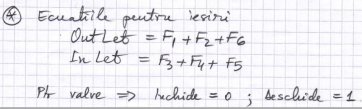 * Ecuatiile pentru iesiri
OutLet = F1 + F2 + F6
InLet = F3 + F4 + F5
Ptr valve => Inchide = 0 ; Deschide = 1